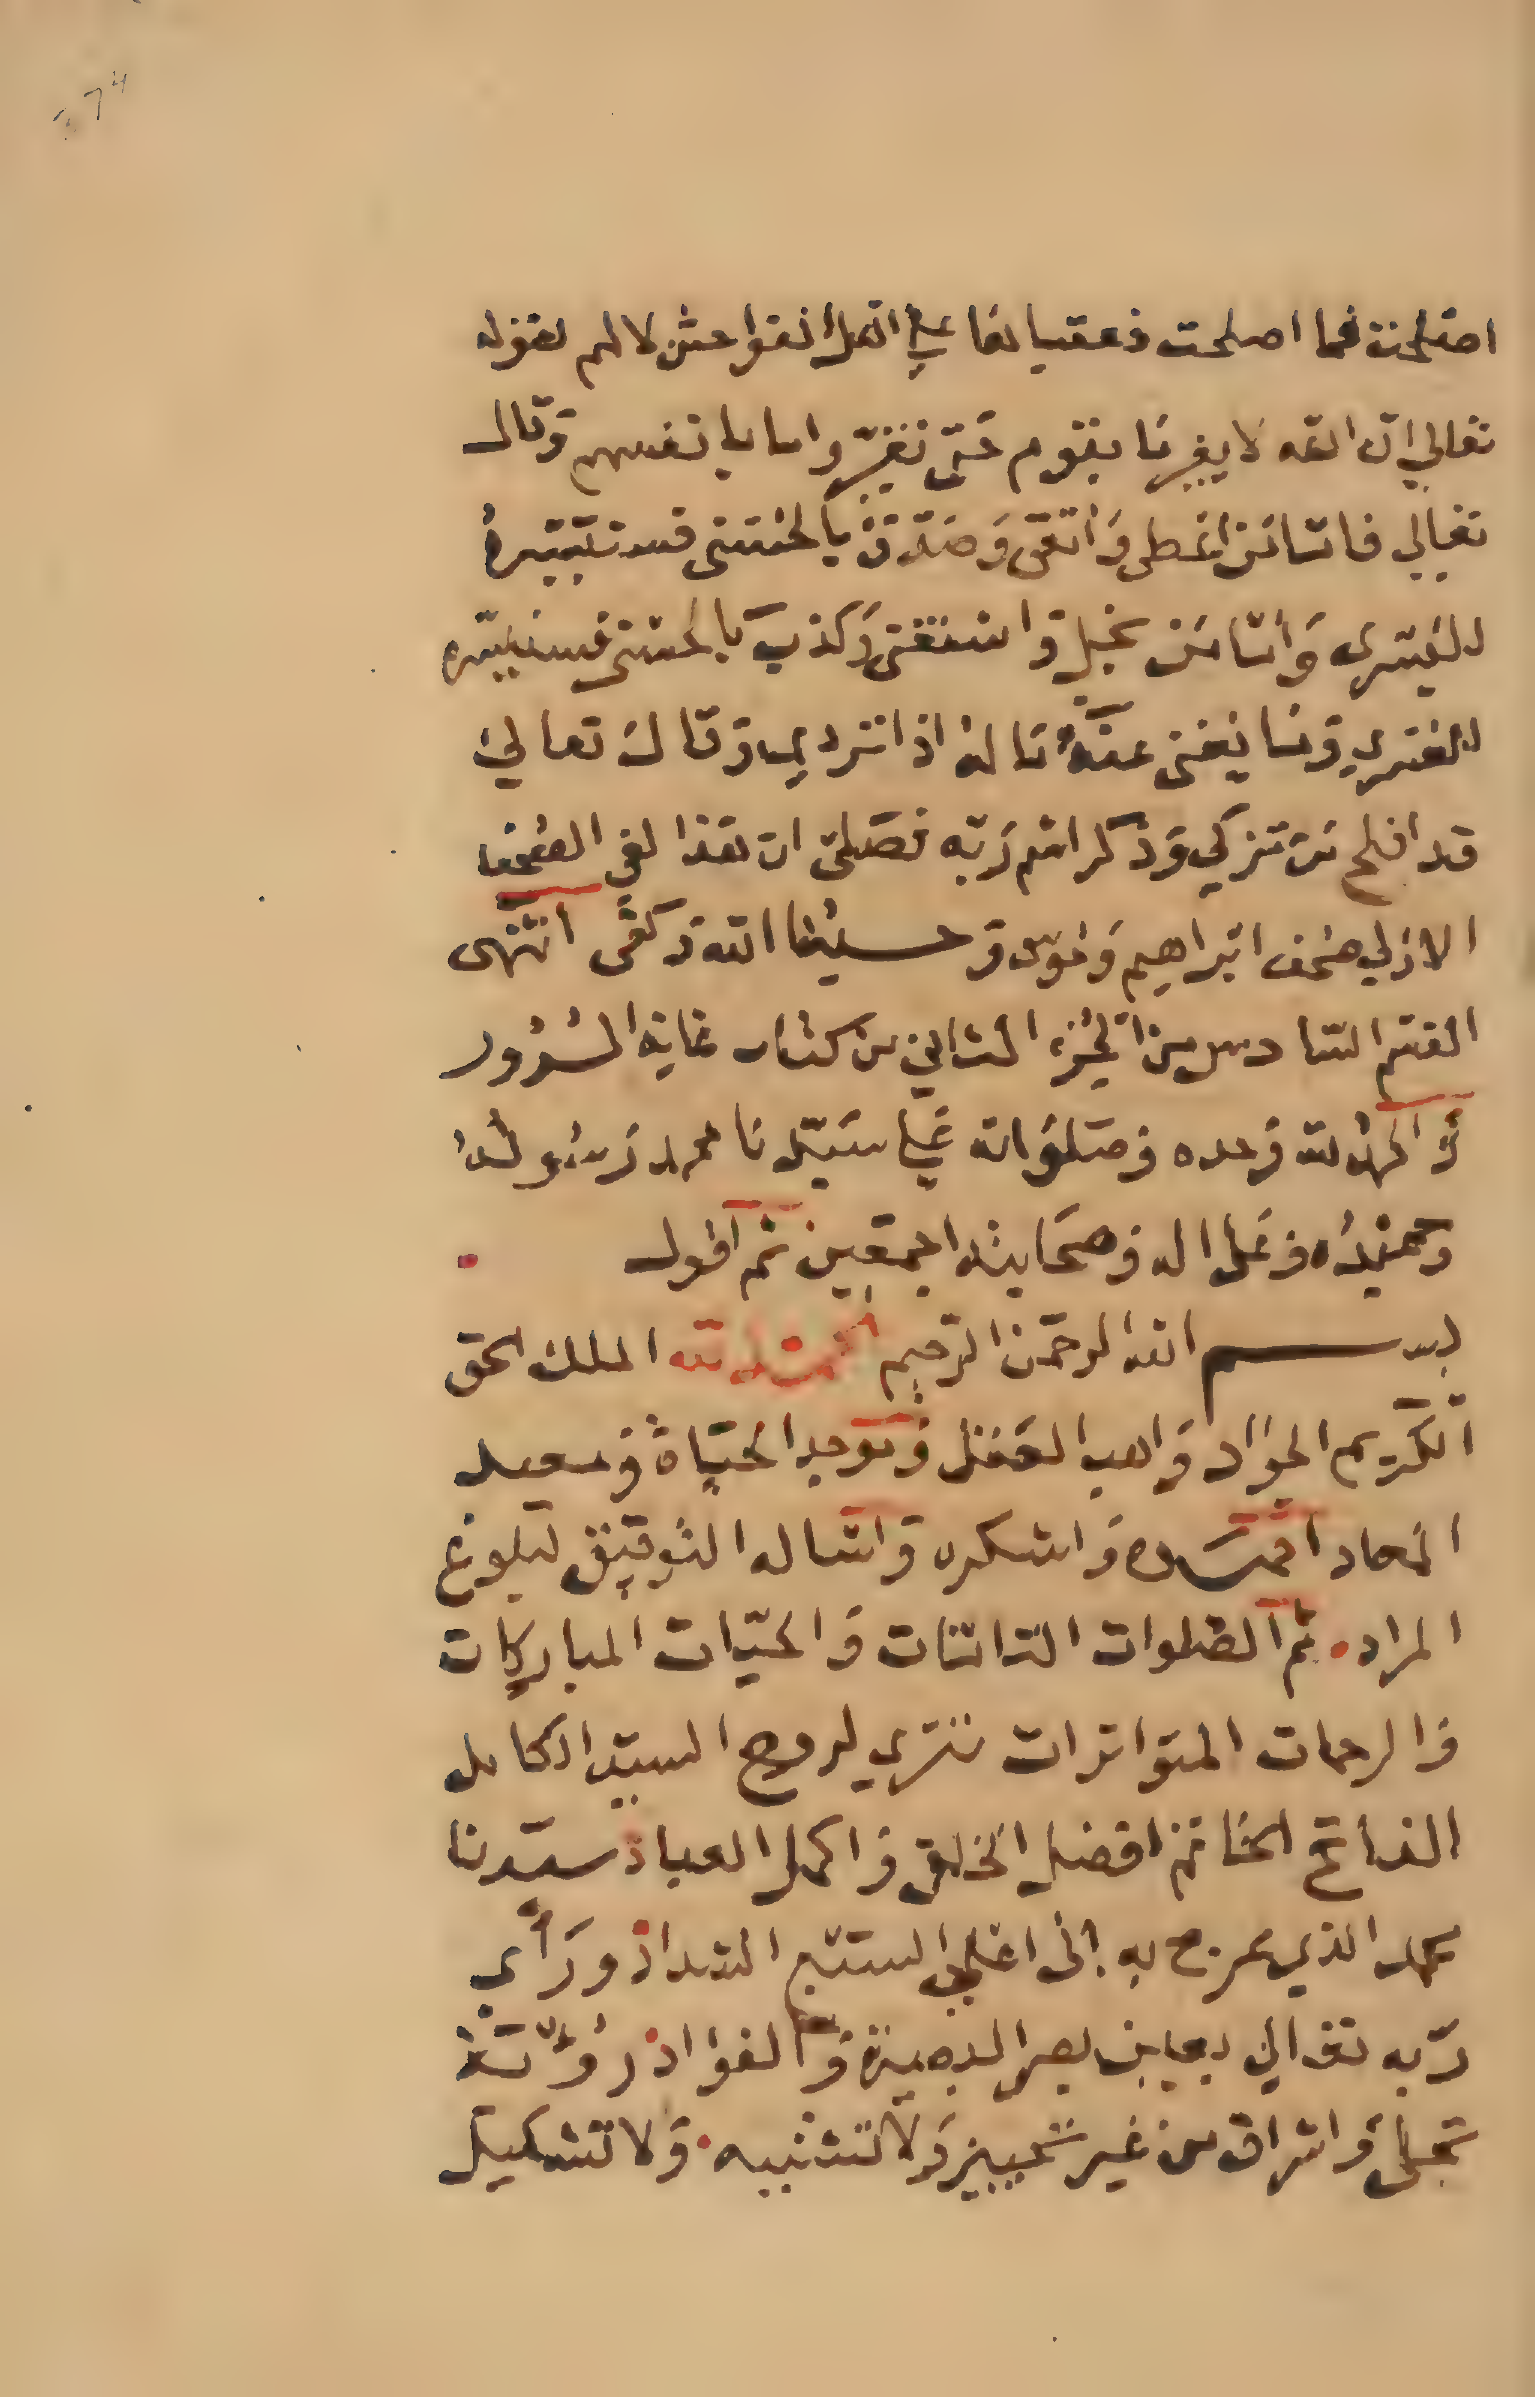 اصلحت فما اصلحت فعقباها علي اهل الفواحش لا لهم لقوله
تعالي ان الله لا يغير ما بقوم حتي يغيروا ما بانفسهم وقال
تعالي فاما من اعطي واتقى وصدق بالحسنى فسنيسره
لليسرى واما من بخل واستغنى وكذب بالحسنى فسنيسره
للعسرى وما يغنى عنه ماله اذا تردي وقال تعالي
قد افلح من تزكي وذكر اسم ربه فصلى ان هذا لفي الصحف
الاولي صحف ابراهيم وموسى وحسبنا الله وكفى انتهى
القسم السادس من الجزء الثاني من كتاب غاية السرور
والحمد لله وحده وصلواته علي سيدنا محمد رسوله
وعبده وعلى اله وصحابته اجمعين ثم اقول
بسم الله الرحمن الرحيم الحمد لله الملك الحق
الكريم الجواد واهب العقل وموجد الحياة ومعيد
المعاد احمده واشكره واساله التوفيق لبلوغ
المراد ثم الصلوات التامات والتحيات المباركات
والرحمات المتواترات تترى لروح السيد الكامل
الفاتح الخاتم افضل الخلق واكمل العباد سيدنا
محمد الذي عرج به الى اعلي السبع الشداد وراى
ربه تعالي بعاين بصر البصيرة والفواد روية
تجلى واشراق من غير تحييز ولا تشبيه ولا تشكيل